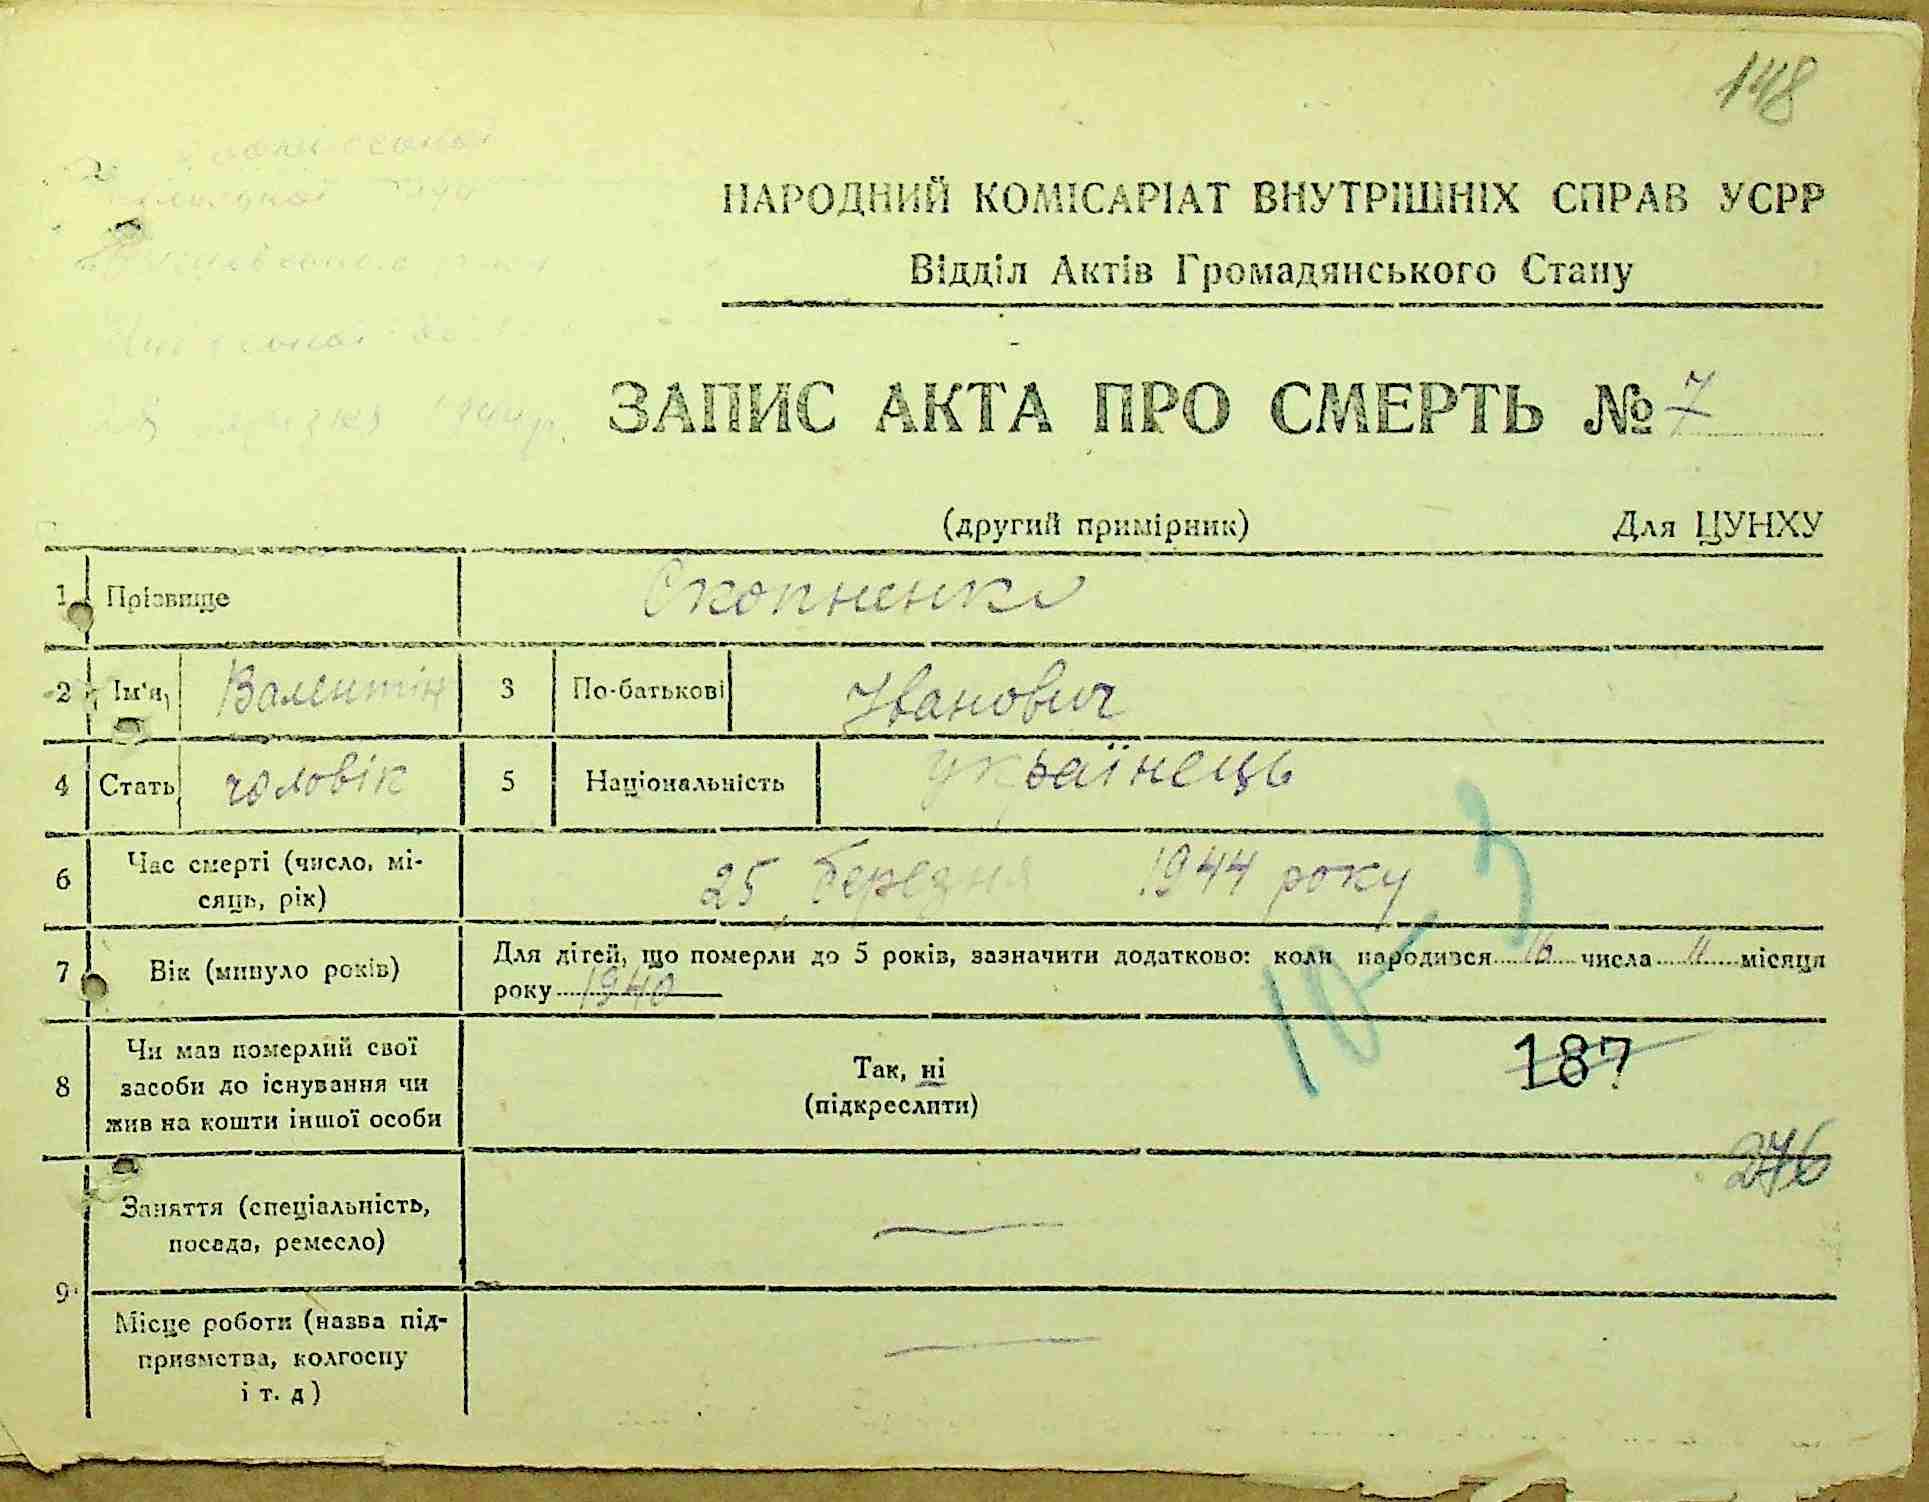 148
НАРОДНИЙ КОМІСАРІАТ ВНУТРІШНІХ СПРАВ УСРР
Відділ Актів Громадянського Стану
ЗАПИС АКТА ПРО СМЕРТЬ № 7
(другий примірник) Для ЦУНХУ
1 Прізвище Скопненко
2 Ім'я, Валентін 3 По-батькові Іванович
4 Стать чоловік 5 Національність українець
6 Час смерті (число, мі-
сяць, рік) 25 березня 1944 року
7 Вік (минуло років) Для дітей, що померли до 5 років, зазначити додатково: коли народився 16 числа 11 місяця
року 1940
10-3
8 Чи мав померлий свої
засоби до існування чи
жив на кошти іншої особи
Так, ні
(підкреслити)
187
276
9 Заняття (спеціальність,
посада, ремесло)
Місце роботи (назва під-
приємства, колгоспу
і т. д)